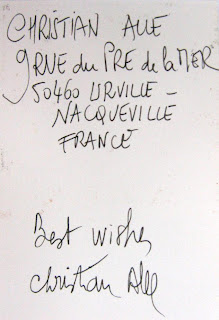 CHRISTIAN ALLE
9 RUE du PRE de la MER
50460 URVILLE -
NACQUEVILLE
FRANCE
Best wishes
Christian Alle